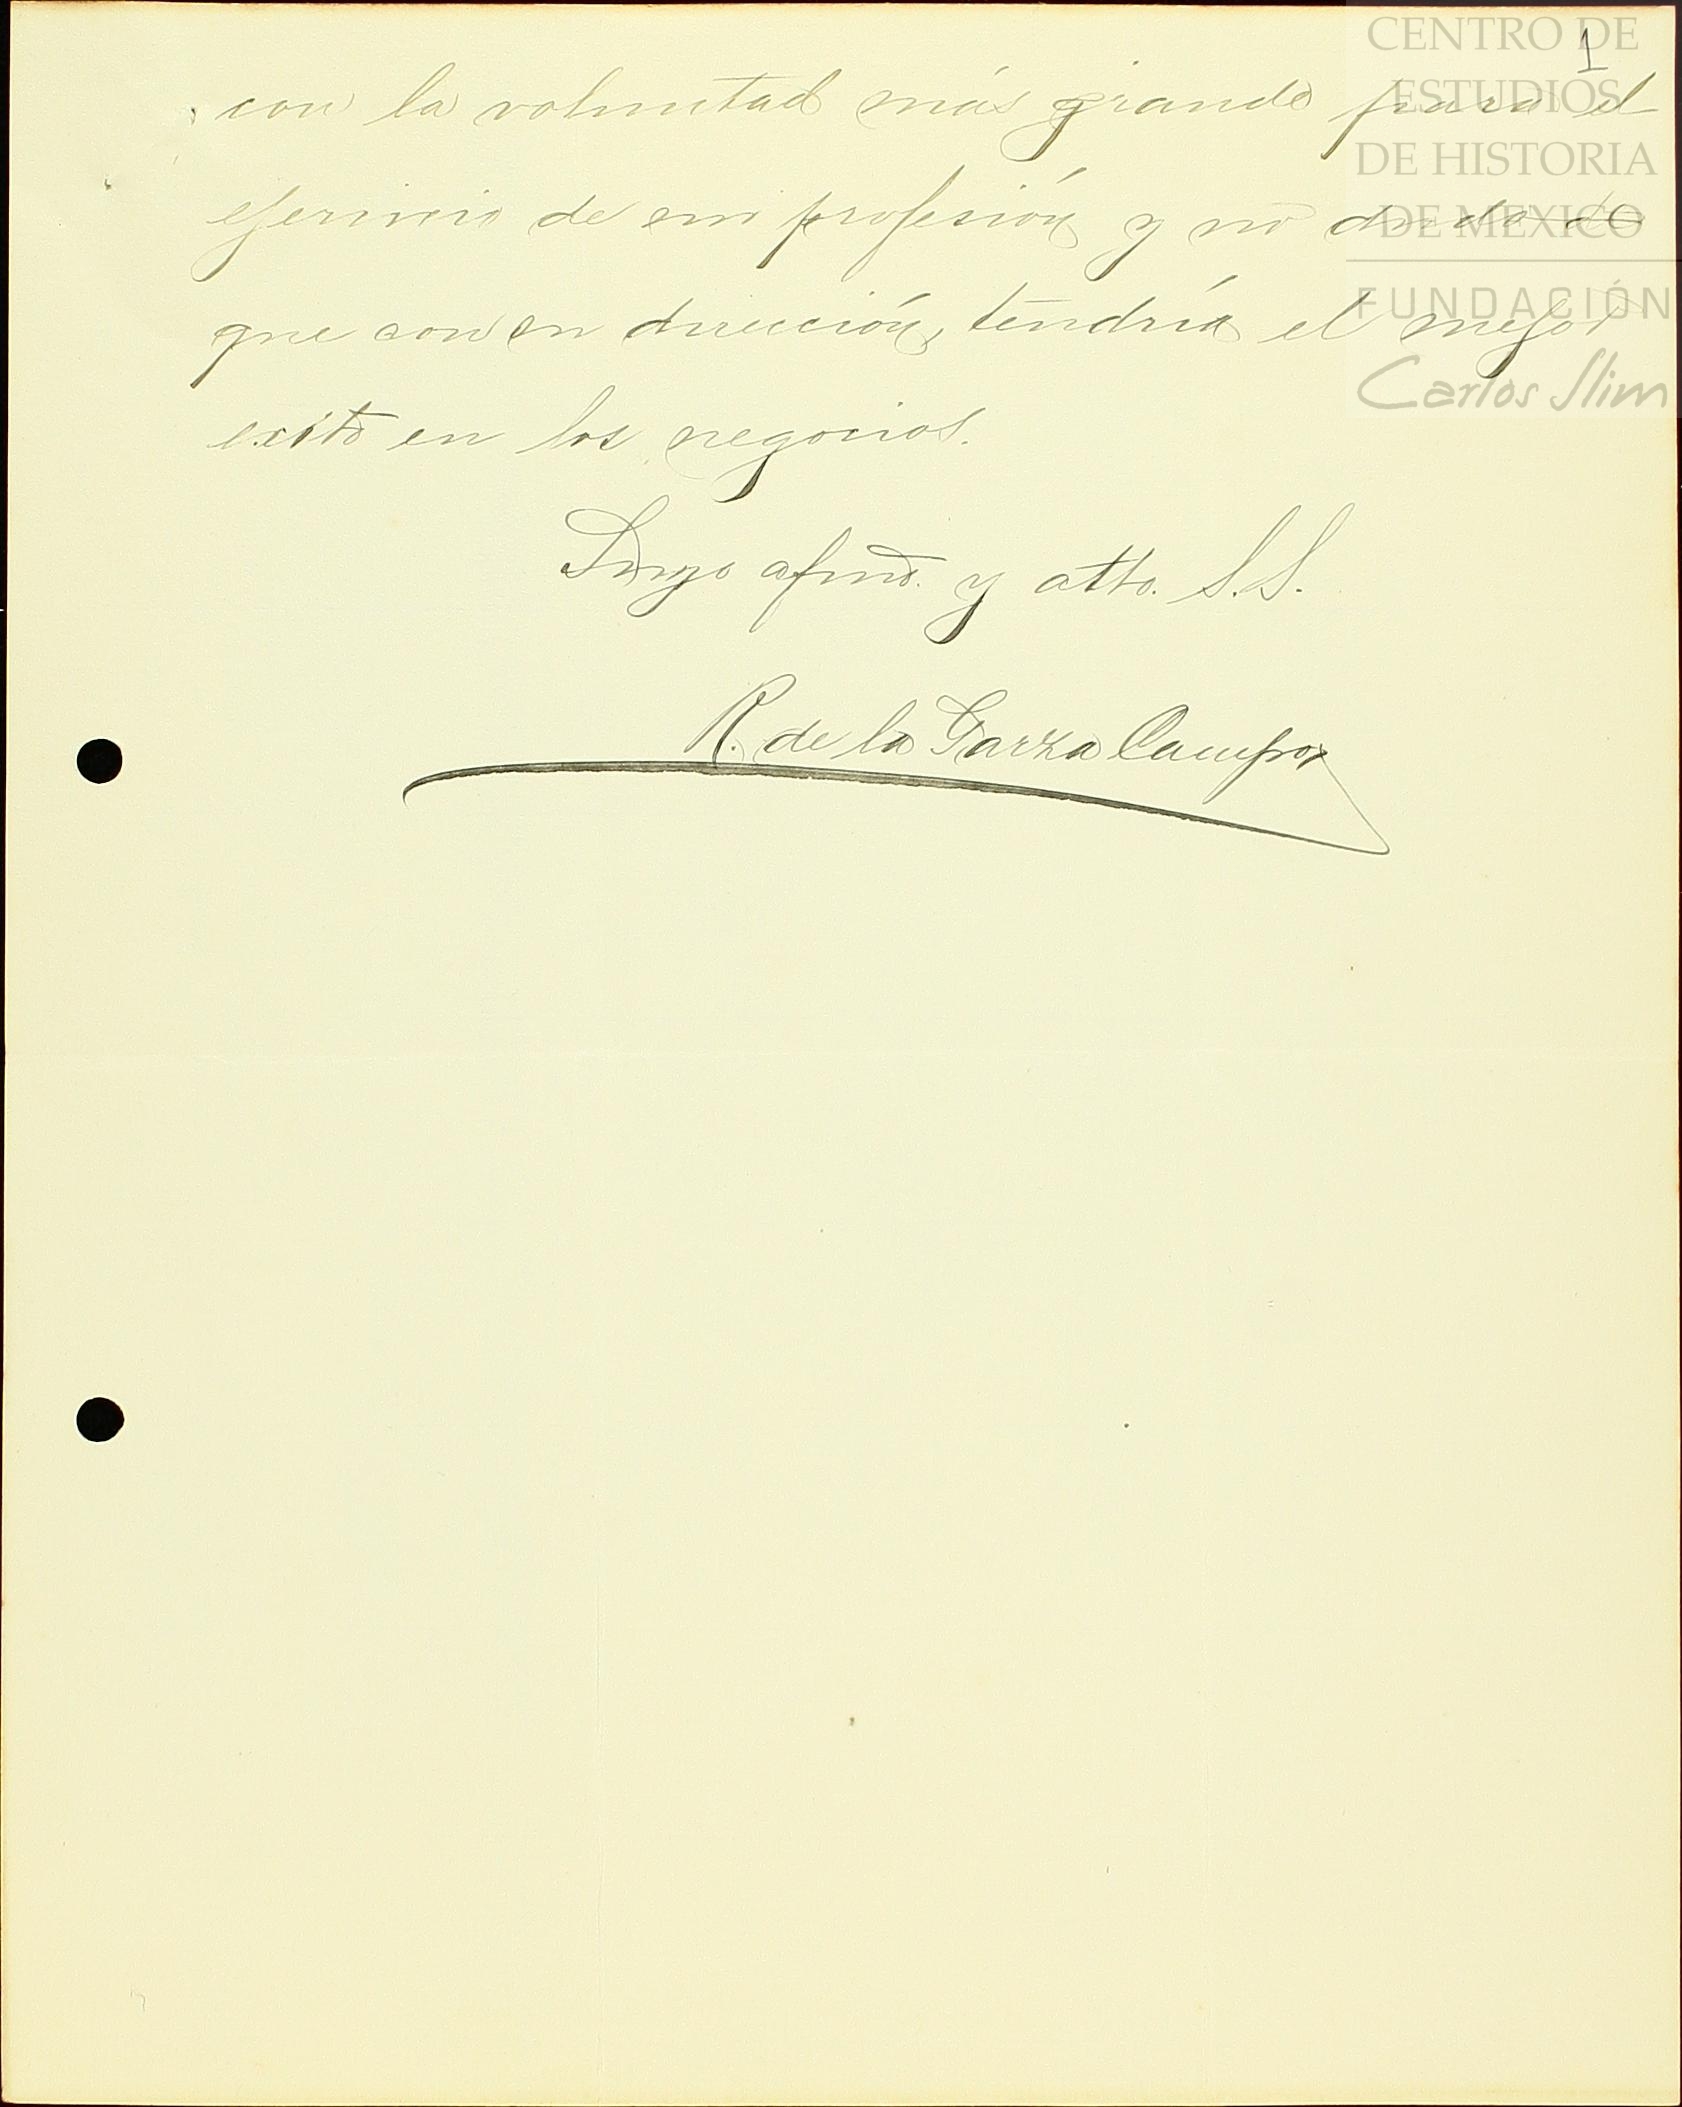 1
con la voluntad más grande para el
ejercicio de mi profesión y no dudo de
que con su dirección, tendría el mejor
exito en los negocios.
Suyo afmo. y atto. S.S.
R. de la Garza Campos
CENTRO DE
ESTUDIOS
DE HISTORIA
DE MEXICO
FUNDACIÓN
Carlos Slim